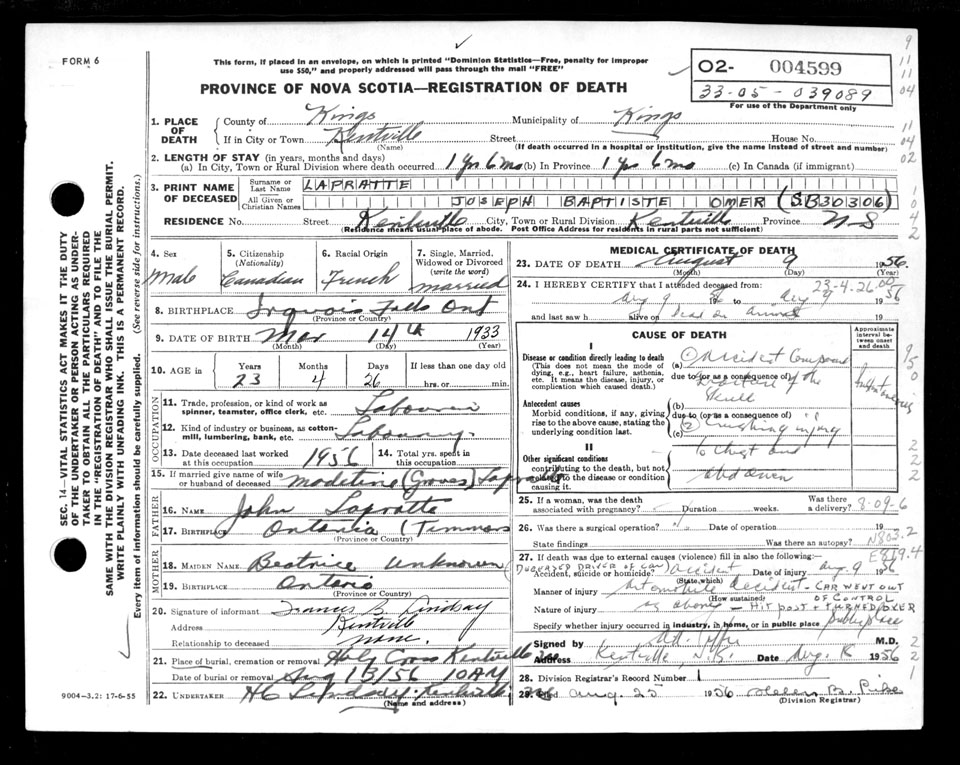 FORM 6
This form, if placed in an envelope, on which is printed "Dominion Statistics—Free, penalty for improper
use $50," and properly addressed will pass through the mail "FREE"
O2- 004599
33-05-039089
For use of the Department only
PROVINCE OF NOVA SCOTIA—REGISTRATION OF DEATH
1. PLACE OF DEATH
County of Kings Municipality of Kings
If in City or Town Kentville Street House No.
(Name) (If death occurred in a hospital or Institution, give the name instead of street and number)
2. LENGTH OF STAY (in years, months and days)
(a) In City, Town or Rural Division where death occurred 1 yr 6 mo (b) In Province 1 yr 6 mo (c) In Canada (if immigrant)
3. PRINT NAME OF DECEASED
Surname or Last Name LAPRATTE
All Given or Christian Names JOSEPH BAPTISTE OMER (SB30306)
RESIDENCE No. Street Kentville City, Town or Rural Division Kentville Province N S
(Residence means usual place of abode. Post Office Address for residents in rural parts not sufficient)
4. Sex Male
5. Citizenship (Nationality) Canadian
6. Racial Origin French
7. Single, Married, Widowed or Divorced (write the word) married
8. BIRTHPLACE Iroquois Falls Ont
(Province or Country)
9. DATE OF BIRTH Mar 14th 1933
(Month) (Day) (Year)
10. AGE in Years Months Days If less than one day old
23 4 26 hrs. or min.
OCCUPATION
11. Trade, profession, or kind of work as spinner, teamster, office clerk, etc. Labourer
12. Kind of industry or business, as cotton-mill, lumbering, bank, etc. Labouring
13. Date deceased last worked at this occupation 1956
14. Total yrs. spent in this occupation
15. If married give name of wife or husband of deceased Madeline (Groves) Lapratte
FATHER
16. Name John Lapratte
17. Birthplace Ontario (Timmons
(Province or Country)
MOTHER
18. Maiden Name Beatrice Unknown
19. Birthplace Ontario
(Province or Country)
20. Signature of informant Francis B. Lindsay
Address Kentville
Relationship to deceased none.
21. Place of burial, cremation or removal Holy Cross Kentville
Date of burial or removal Aug 13/56 10 AM
22. UNDERTAKER Kentville
(Name and address)
MEDICAL CERTIFICATE OF DEATH
23. DATE OF DEATH August 9 1956
(Month) (Day) (Year)
23-4-26.00
24. I HEREBY CERTIFY that I attended deceased from
Aug 9 56 to Aug 9 1956
and last saw h alive on dead on arrival 19
CAUSE OF DEATH
Approximate interval between onset and death
I
Disease or condition directly leading to death
(This does not mean the mode of dying, e.g., heart failure, asthenia, etc. It means the disease, injury, or complication which caused death.)
(a) ① Accident Compound
due to (or as a consequence of)
fracture of the
skull
Antecedent causes
Morbid conditions, if any, giving rise to the above cause, stating the underlying condition last.
(b)
due to (or as a consequence of)
(c) ② Crushing injury
II
Other significant conditions contributing to the death, but not related to the disease or condition causing it.
to Chest and
abdomen
25. If a woman, was the death associated with pregnancy? Duration weeks. Was there a delivery?
8-09-6
26. Was there a surgical operation? Date of operation 19
State findings Was there an autopsy?
N803.2
27. If death was due to external causes (violence) fill in also the following:
E819.4
(DECEASED DRIVER OF CAR)
Accident, suicide or homicide? Accident Date of injury Aug 9 1956
(State which)
Manner of injury Automobile accident - CAR WENT OUT
(How sustained) OF CONTROL
Nature of injury as above - HIT POST & TURNED OVER
Specify whether injury occurred in industry, in home, or in public place public place
Signed by M.D.
Address Kentville, N.S. Date Aug. 1956
28. Division Registrar's Record Number 1
29. Aug. 25 1956 Helen B. Pike
(Division Registrar)
9004—3.2: 17-6-55
SEC. 14—VITAL STATISTICS ACT MAKES IT THE DUTY
OF THE UNDERTAKER OR PERSON ACTING AS UNDER-
TAKER TO OBTAIN ALL THE PARTICULARS REQUIRED
IN THE "REGISTRATION OF DEATH" AND TO FILE THE
SAME WITH THE DIVISION REGISTRAR WHO SHALL ISSUE THE BURIAL PERMIT.
WRITE PLAINLY WITH UNFADING INK. THIS IS A PERMANENT RECORD.
Every item of information should be carefully supplied. (See reverse side for instructions.)